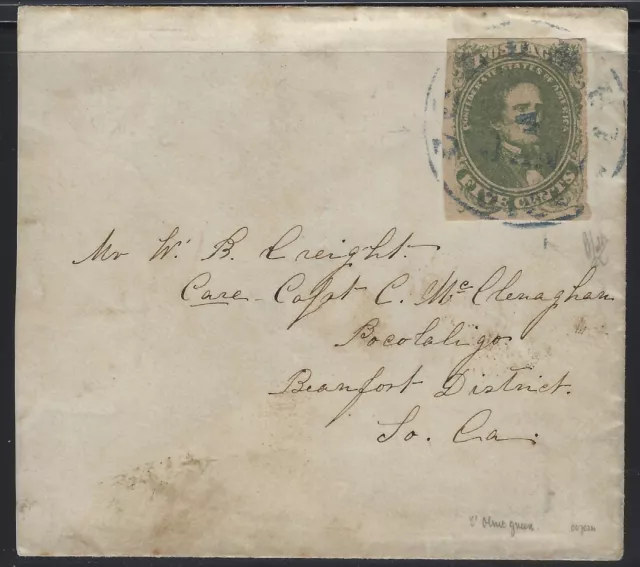 POSTAGE
CONFEDERATE STATES OF AMERICA
FIVE CENTS
Mr W. B. Creight.
Care - Capt C. McClenaghan
Pocotaligo
Beaufort District.
So. Ca.
5¢ Olive green